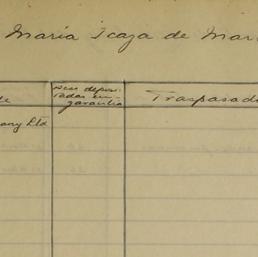 Maria Icaza de Mar
de
Acs. depos-
tadas en
garantia
Traspasad
any Ltd